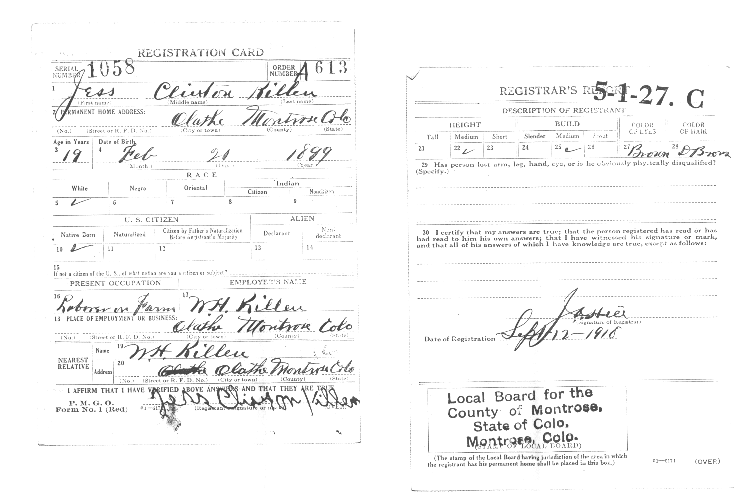 REGISTRATION CARD
SERIAL NUMBER 1058 ORDER NUMBER A 613
1 Jess Clinton Killen
(First name) (Middle name) (Last name)
2 PERMANENT HOME ADDRESS:
Olathe Montrose Colo
(No.) (Street or R. F. D. No.) (City or town) (County) (State)
Age in Years Date of Birth
3 19 4 Feb 20 1899
(Month) (Year)
RACE
White Negro Oriental Indian
Citizen Noncitizen
5 ✓ 6 7 8 9
U. S. CITIZEN ALIEN
Native Born Naturalized Citizen by Father's Naturalization Before Registrant's Majority Declarant Non-declarant
10 ✓ 11 12 13 14
15
If not a citizen of the U. S., of what nation are you a citizen or subject?
PRESENT OCCUPATION EMPLOYER'S NAME
16 Laborer on Farm 17 W.H. Killen
18 PLACE OF EMPLOYMENT OR BUSINESS:
Olathe Montrose Colo
(No.) (Street or R. F. D. No.) (City or town) (County) (State)
NEAREST RELATIVE Name 19 W.H. Killen
Address 20 Olathe Montrose Colo
(No.) (Street or R. F. D. No.) (City or town) (County) (State)
I AFFIRM THAT I HAVE VERIFIED ABOVE ANSWERS AND THAT THEY ARE TRUE
P. M. G. O.
Form No. 1 (Red) Jess Clinton Killen
(Registrant's signature or mark)
REGISTRAR'S REPORT 5-1-27. C
DESCRIPTION OF REGISTRANT
HEIGHT BUILD COLOR OF EYES COLOR OF HAIR
Tall Medium Short Slender Medium Stout
21 22 ✓ 23 24 25 ✓ 26 27 Brown 28 D Brown
29 Has person lost arm, leg, hand, eye, or is he obviously physically disqualified?
(Specify.)
30 I certify that my answers are true; that the person registered has read or has
had read to him his own answers; that I have witnessed his signature or mark,
and that all of his answers of which I have knowledge are true, except as follows:
(Signature of Registrar)
Date of Registration Sept 12-1918
Local Board for the
County of Montrose,
State of Colo,
Montrose, Colo.
(STAMP OF LOCAL BOARD)
(The stamp of the Local Board having jurisdiction of the area in which
the registrant has his permanent home shall be placed in this box.)
(OVER)